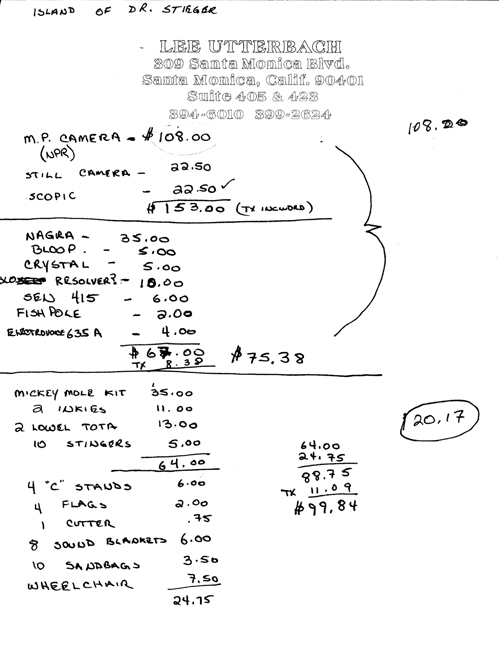 ISLAND OF DR. STIEGER
LEE UTTERBACH
309 Santa Monica Blvd.
Santa Monica, Calif. 90401
Suite 405 & 423
394-6010 399-2624
108.20
M.P. CAMERA - $108.00
(NPR)
STILL CAMERA - 22.50
SCOPIC - 22.50 ✓
$153.00 (TX INCLUDED)
NAGRA - 35.00
BLOOP. - 5.00
CRYSTAL - 5.00
RESOLVER? - 10.00
SEN 415 - 6.00
FISH POLE - 2.00
ELECTROVOICE 635 A - 4.00
$67.00 $75.38
TX 8.38
MICKEY MOLE KIT 35.00
2 INKIES 11.00
2 LOWEL TOTA 13.00
10 STINGERS 5.00
64.00
20.17
4 "C" STANDS 6.00
4 FLAGS 2.00
1 CUTTER .75
8 SOUND BLANKETS 6.00
10 SANDBAGS 3.50
WHEELCHAIR 7.50
24.75
64.00
24.75
88.75
TX 11.09
$99.84